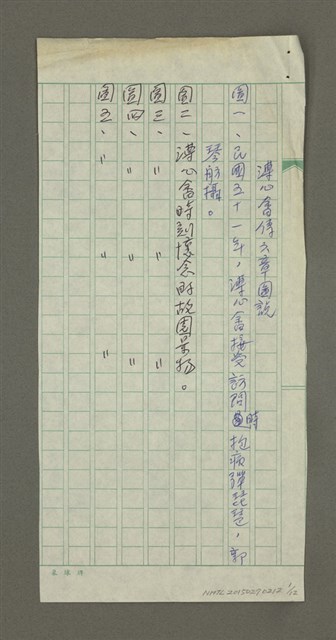 溥心畬傳文章圖說
圖一、民國五十一年，溥心畬接受訪問時抱病彈琵琶，郭
琴舫攝。
圖二、溥心畬時刻懷念的故園景物。
圖三、〃 〃 〃
圖四、〃 〃 〃
圖五、〃 〃 〃
NMTL 20150270212 1/12